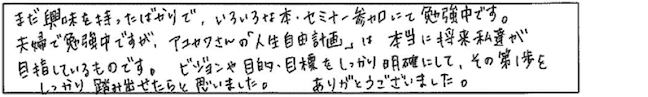 まだ興味を持ったばかりで、いろいろな本・セミナー参加にて勉強中です。
夫婦で勉強中ですが、アユカワさんの「人生自由計画」は本当に将来私達が
目指しているものです。ビジョンや目的・目標をしっかり明確にして、その第1歩を
しっかり踏み出せたらと思いました。ありがとうございました。